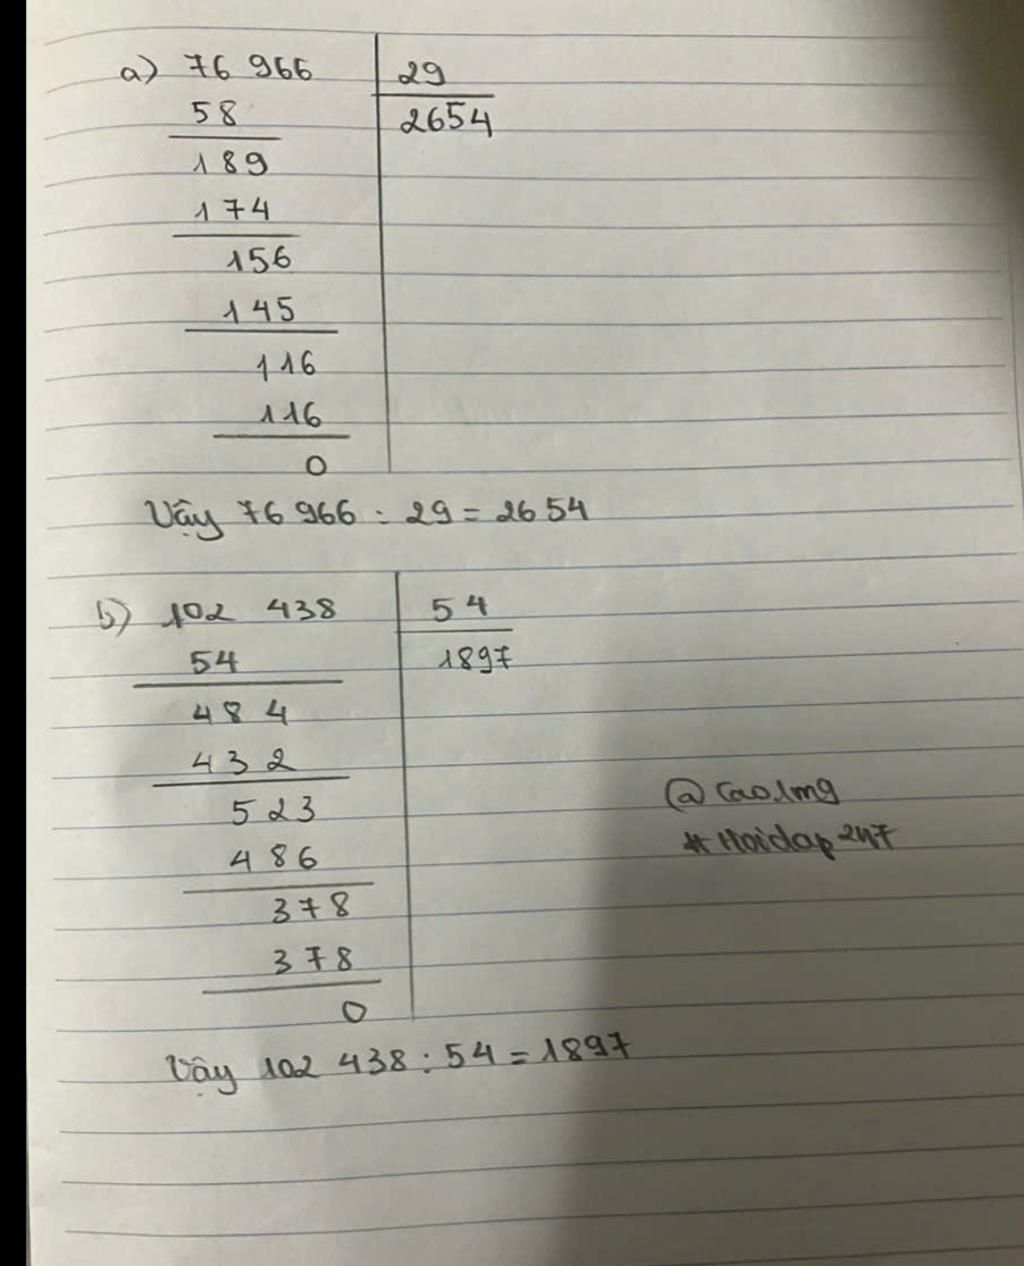 a) 76 966 29
58 2654
189
174
156
145
116
116
0
Vậy 76 966 : 29 = 2654
b) 102 438 54
54 1897
484
432
523
486
378
378
0
Vậy 102 438 : 54 = 1897
@Cao1mg
#Hoidap247